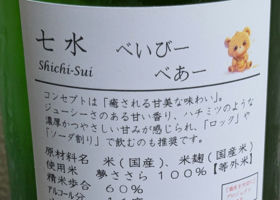 七水 べいびー
Shichi-Sui べあー
コンセプトは「癒される甘美な味わい」。
ジューシーさのある甘い香り、ハチミツのような
濃厚かつやさしい甘みが感じられ、「ロック」や
「ソーダ割り」で飲むのも推奨です。
原材料名 米(国産)、米麹(国産米)
使用米 夢ささら100%【等外米】
精米歩合 60%
アルコール分